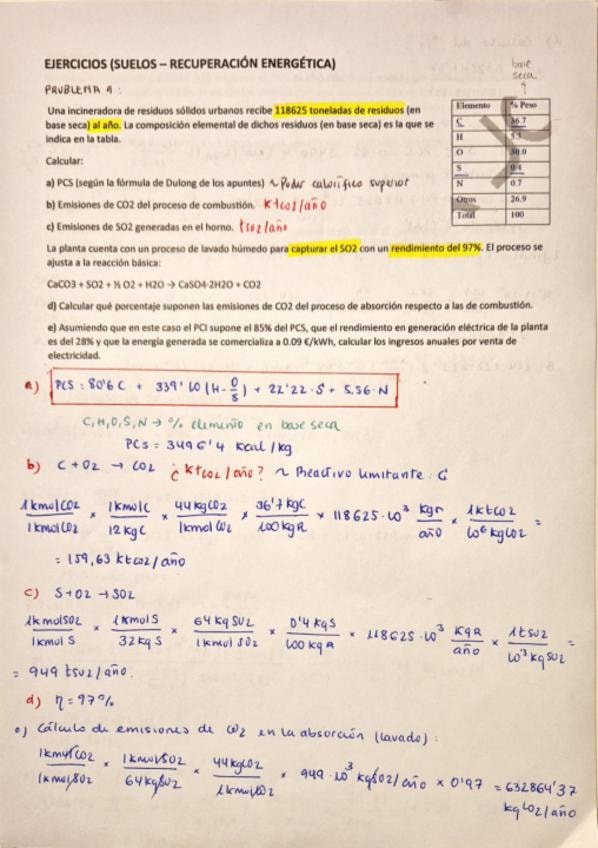 EJERCICIOS (SUELOS – RECUPERACIÓN ENERGÉTICA)
base
seca
PROBLEMA 1:
Una incineradora de residuos sólidos urbanos recibe 118625 toneladas de residuos (en
base seca) al año. La composición elemental de dichos residuos (en base seca) es la que se
indica en la tabla.
Elemento % Peso
C 36.7
H
O 30.0
S 0.4
N 0.7
Otros 26.9
Total 100
Calcular:
a) PCS (según la fórmula de Dulong de los apuntes) ~ Poder calorífico superior
b) Emisiones de CO2 del proceso de combustión. ktco2/año
c) Emisiones de SO2 generadas en el horno. tso2/año
La planta cuenta con un proceso de lavado húmedo para capturar el SO2 con un rendimiento del 97%. El proceso se
ajusta a la reacción básica:
CaCO3 + SO2 + ½ O2 + H2O → CaSO4·2H2O + CO2
d) Calcular qué porcentaje suponen las emisiones de CO2 del proceso de absorción respecto a las de combustión.
e) Asumiendo que en este caso el PCI supone el 85% del PCS, que el rendimiento en generación eléctrica de la planta
es del 28% y que la energía generada se comercializa a 0.09 €/kWh, calcular los ingresos anuales por venta de
electricidad.
a) PCS = 80'6 C + 339'10 (H - O/8) + 22'22·S + 5.56·N
C, H, O, S, N → % elemento en base seca
PCs = 3496'4 Kcal/kg
b) C + O2 → CO2 ¿ktco2/año? ~ Reactivo limitante: C
1kmolCO2/1kmolCO2 × 1kmolC/12kgC × 44kgCO2/1kmolCO2 × 36'7kgC/100kgR × 118625·10³ kgr/año × 1ktco2/10⁶kgco2 =
= 159,63 ktco2/año
c) S + O2 → SO2
1kmolSO2/1kmolS × 1kmolS/32kgS × 64kgSO2/1kmolSO2 × 0'4kgS/100kgR × 118625·10³ KgR/año × 1tso2/10³kgSO2 =
= 949 tso2/año.
d) η = 97%
o) Cálculo de emisiones de CO2 en la absorción (lavado):
1kmolCO2/1kmolSO2 × 1kmolSO2/64kgSO2 × 44kgCO2/1kmolCO2 × 949·10³ kgSO2/año × 0'97 = 632864'37
kgCO2/año